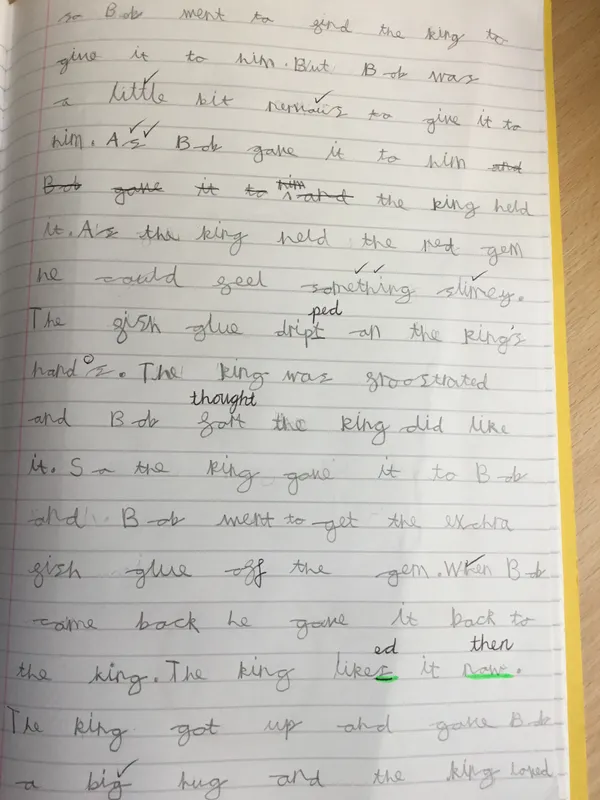 so Bob went to find the king to
give it to him. But Bob was
a little bit nervous to give it to
him. As Bob gave it to him and
Bob gave it to him and the king held
it. As the king held the red gem
he could feel something slimey.
ped
The fish glue dript on the king's
hand's. The king was froostrated
thought
and Bob fort the king did like
it. So the king gave it to Bob
and Bob went to get the exhra
fish glue off the gem. When Bob
came back he gave it back to
ed then
the king. The king likes it now.
The king got up and gave Bob
a big hug and the king loved